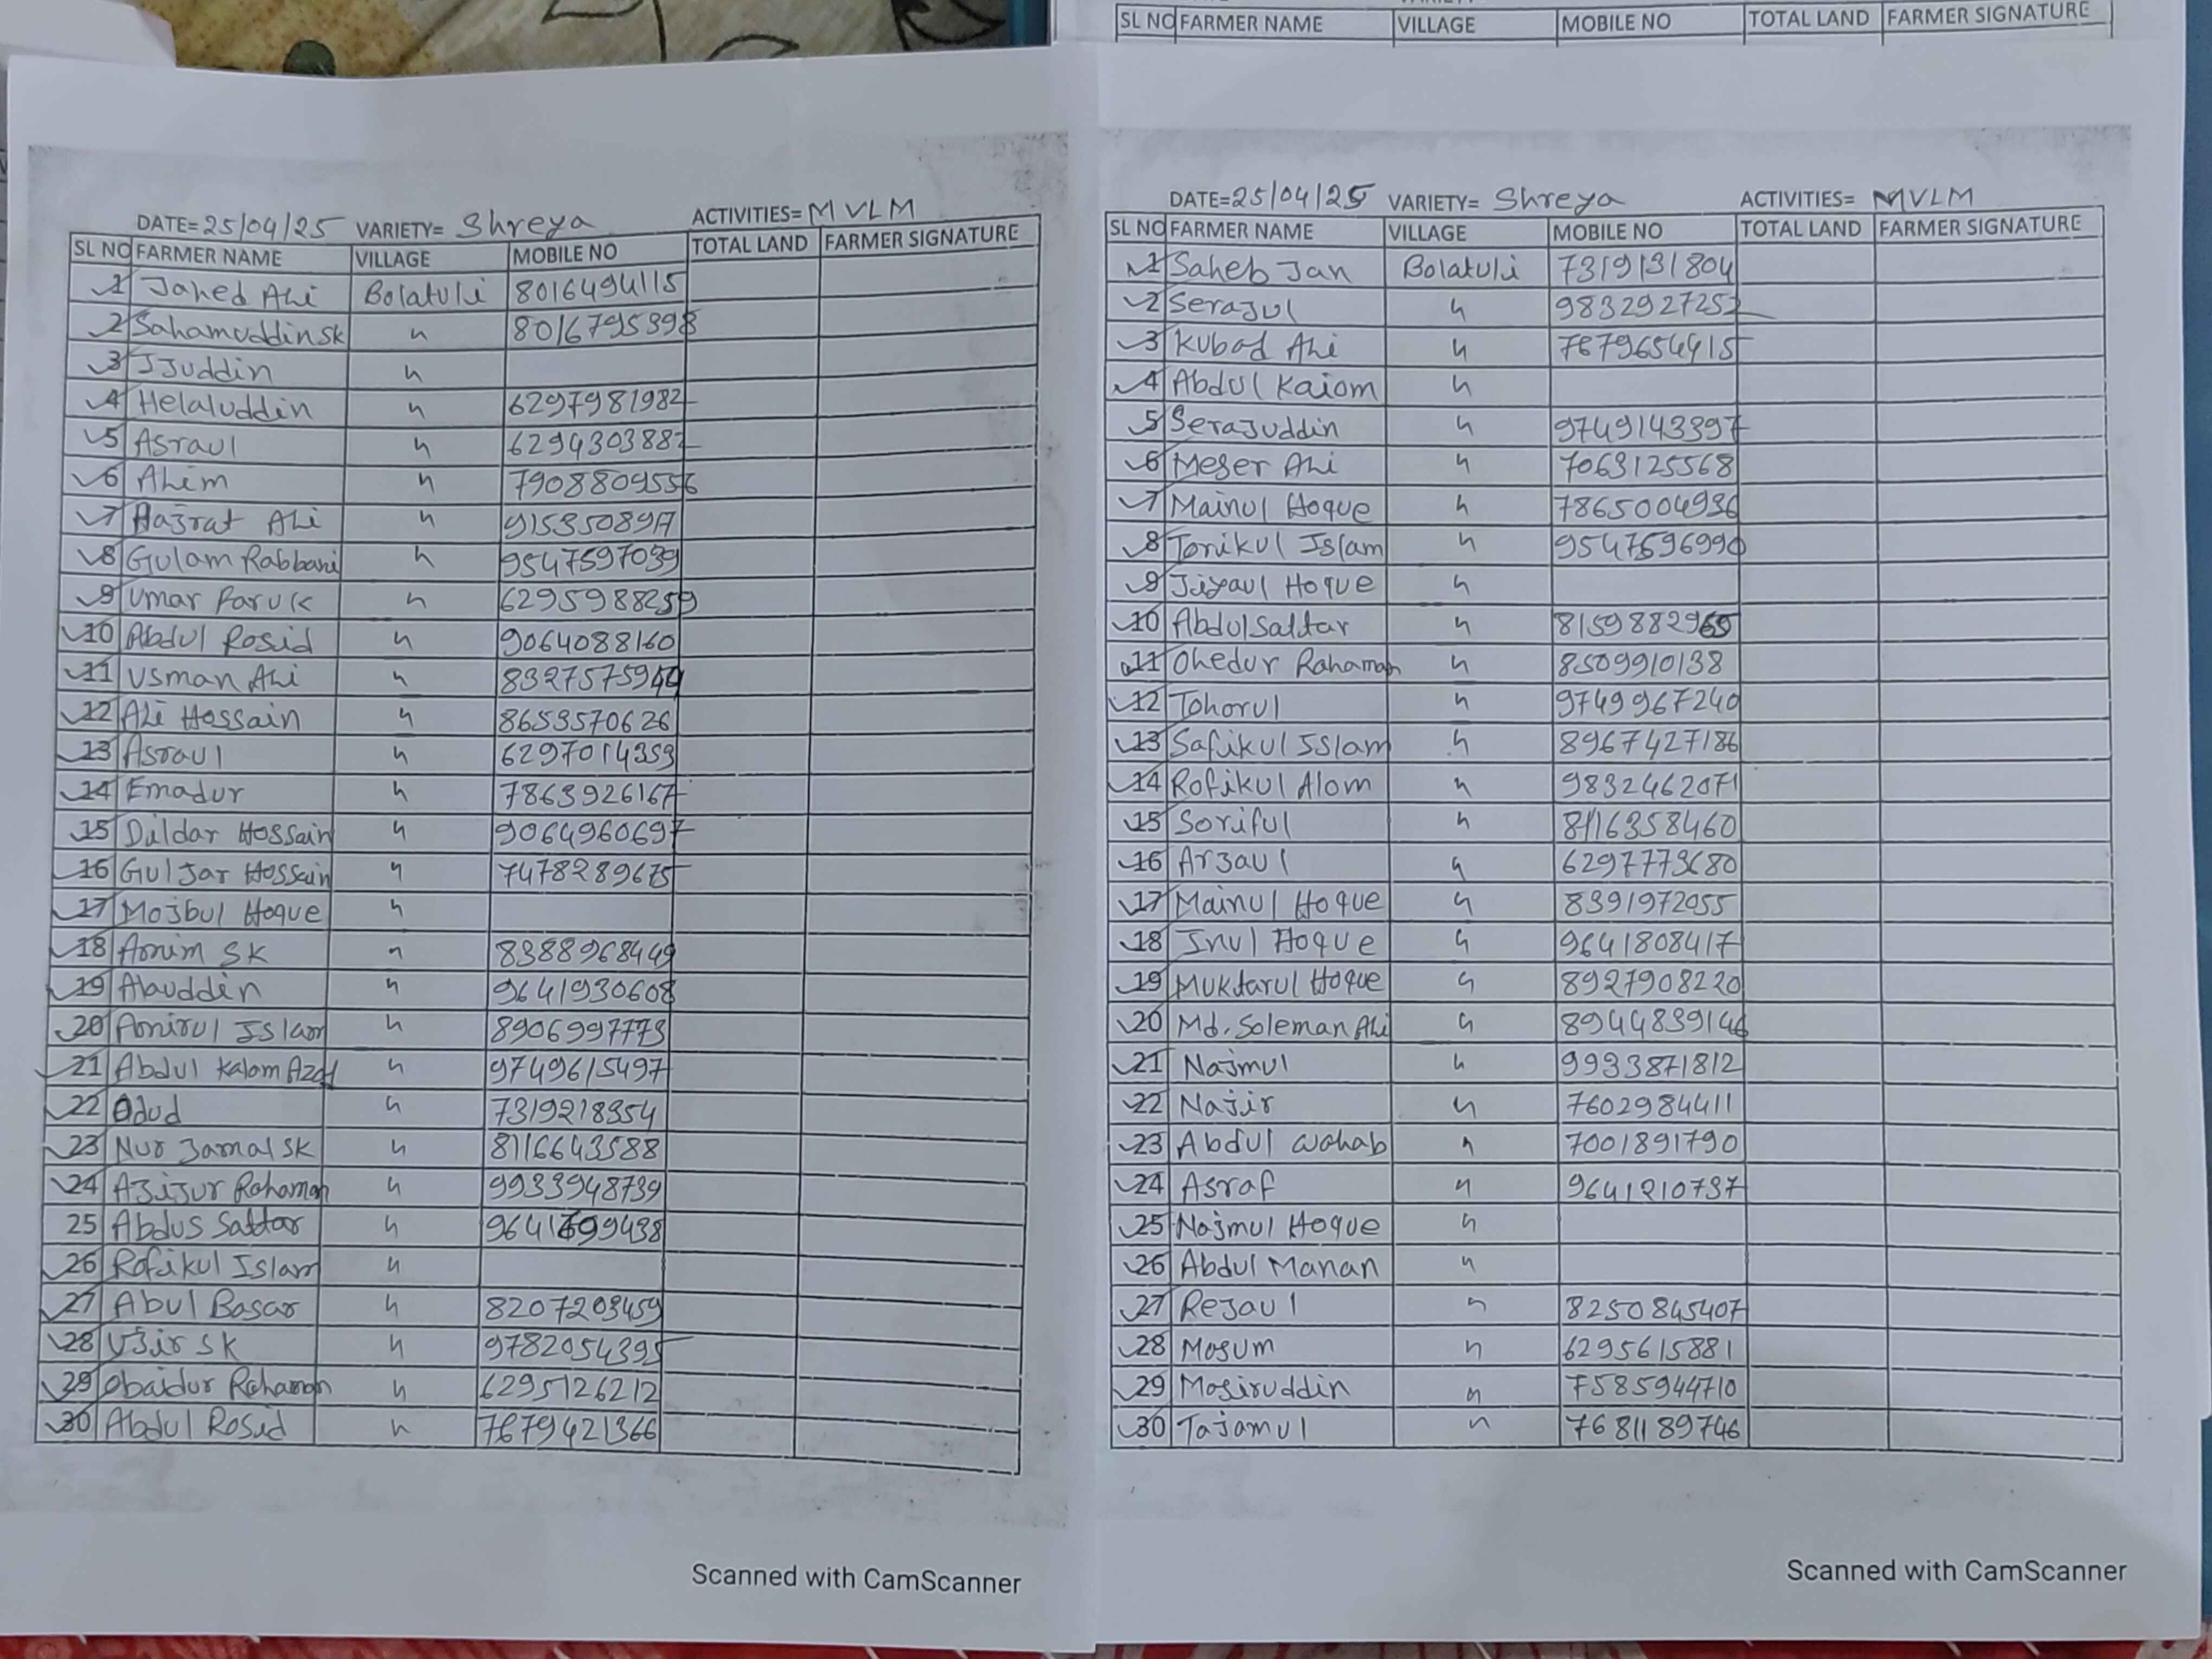 SL NO FARMER NAME VILLAGE MOBILE NO TOTAL LAND FARMER SIGNATURE
DATE=25/04/25 VARIETY= Shreya ACTIVITIES= MVLM
SL NO FARMER NAME VILLAGE MOBILE NO TOTAL LAND FARMER SIGNATURE
1 Jahed Ali Bolatuli 8016494115
2 Sahamuddin sk 〃 8016795398
3 Ijuddin 〃
4 Helaluddin 〃 6297981982
5 Asraul 〃 6294303882
6 Alim 〃 7908809556
7 Hajrat Ali 〃
8 Gulam Rabbani 〃 9547597039
9 Umar Faruk 〃 6295988259
10 Abdul Rosid 〃 9064088160
11 Usman Ali 〃 8327575944
12 Ali Hossain 〃 8653570626
13 Asraul 〃 6297014359
14 Emadur 〃 7863926167
15 Dildar Hossain 〃 9064960697
16 Guljar Hossain 〃 7478289675
17 Mojbul Hoque 〃
18 Amim SK 〃 8388968449
19 Alauddin 〃 9641930608
20 Amirul Islam 〃 8906997773
21 Abdul Kalam Azad 〃 9749615497
22 Odud 〃 7319218354
23 Nur Jamal SK 〃 8116643588
24 Azijur Rahaman 〃 9933948739
25 Abdus Sattar 〃
26 Rofikul Islam 〃
27 Abul Basar 〃 8207203459
28 Ujir SK 〃 9782054395
29 Obaidur Rahaman 〃 6295126212
30 Abdul Rosid 〃 7679421366
Scanned with CamScanner
DATE=25/04/25 VARIETY= Shreya ACTIVITIES= MVLM
SL NO FARMER NAME VILLAGE MOBILE NO TOTAL LAND FARMER SIGNATURE
1 Saheb Jan Bolatuli 7319131804
2 Serajul 〃 9832927252
3 Kubad Ali 〃 7679654915
4 Abdul Kaiom 〃
5 Serajuddin 〃 9749143397
6 Meser Ali 〃 7063125568
7 Mainul Hoque 〃 7865004936
8 Torikul Islam 〃 9547596990
9 Jiyaul Hoque 〃
10 Abdul Sattar 〃 8159882965
11 Ohedur Rahaman 〃 8509910138
12 Tohorul 〃 9749967240
13 Safikul Islam 〃 8967427186
14 Rofikul Alom 〃 9832462071
15 Soriful 〃 8116358460
16 Arzaul 〃 6297773680
17 Mainul Hoque 〃 8391972055
18 Inul Hoque 〃 9641808417
19 Muktarul Hoque 〃 8927908220
20 Md. Soleman Ali 〃 8944839146
21 Najmul 〃 9933871812
22 Najir 〃 7602984411
23 Abdul Wahab 〃 7001891790
24 Asraf 〃 9641210737
25 Najmul Hoque 〃
26 Abdul Manan 〃
27 Rejaul 〃 8250845407
28 Mosum 〃 6295615881
29 Mosiruddin 〃 7585944710
30 Tajamul 〃 7681189746
Scanned with CamScanner